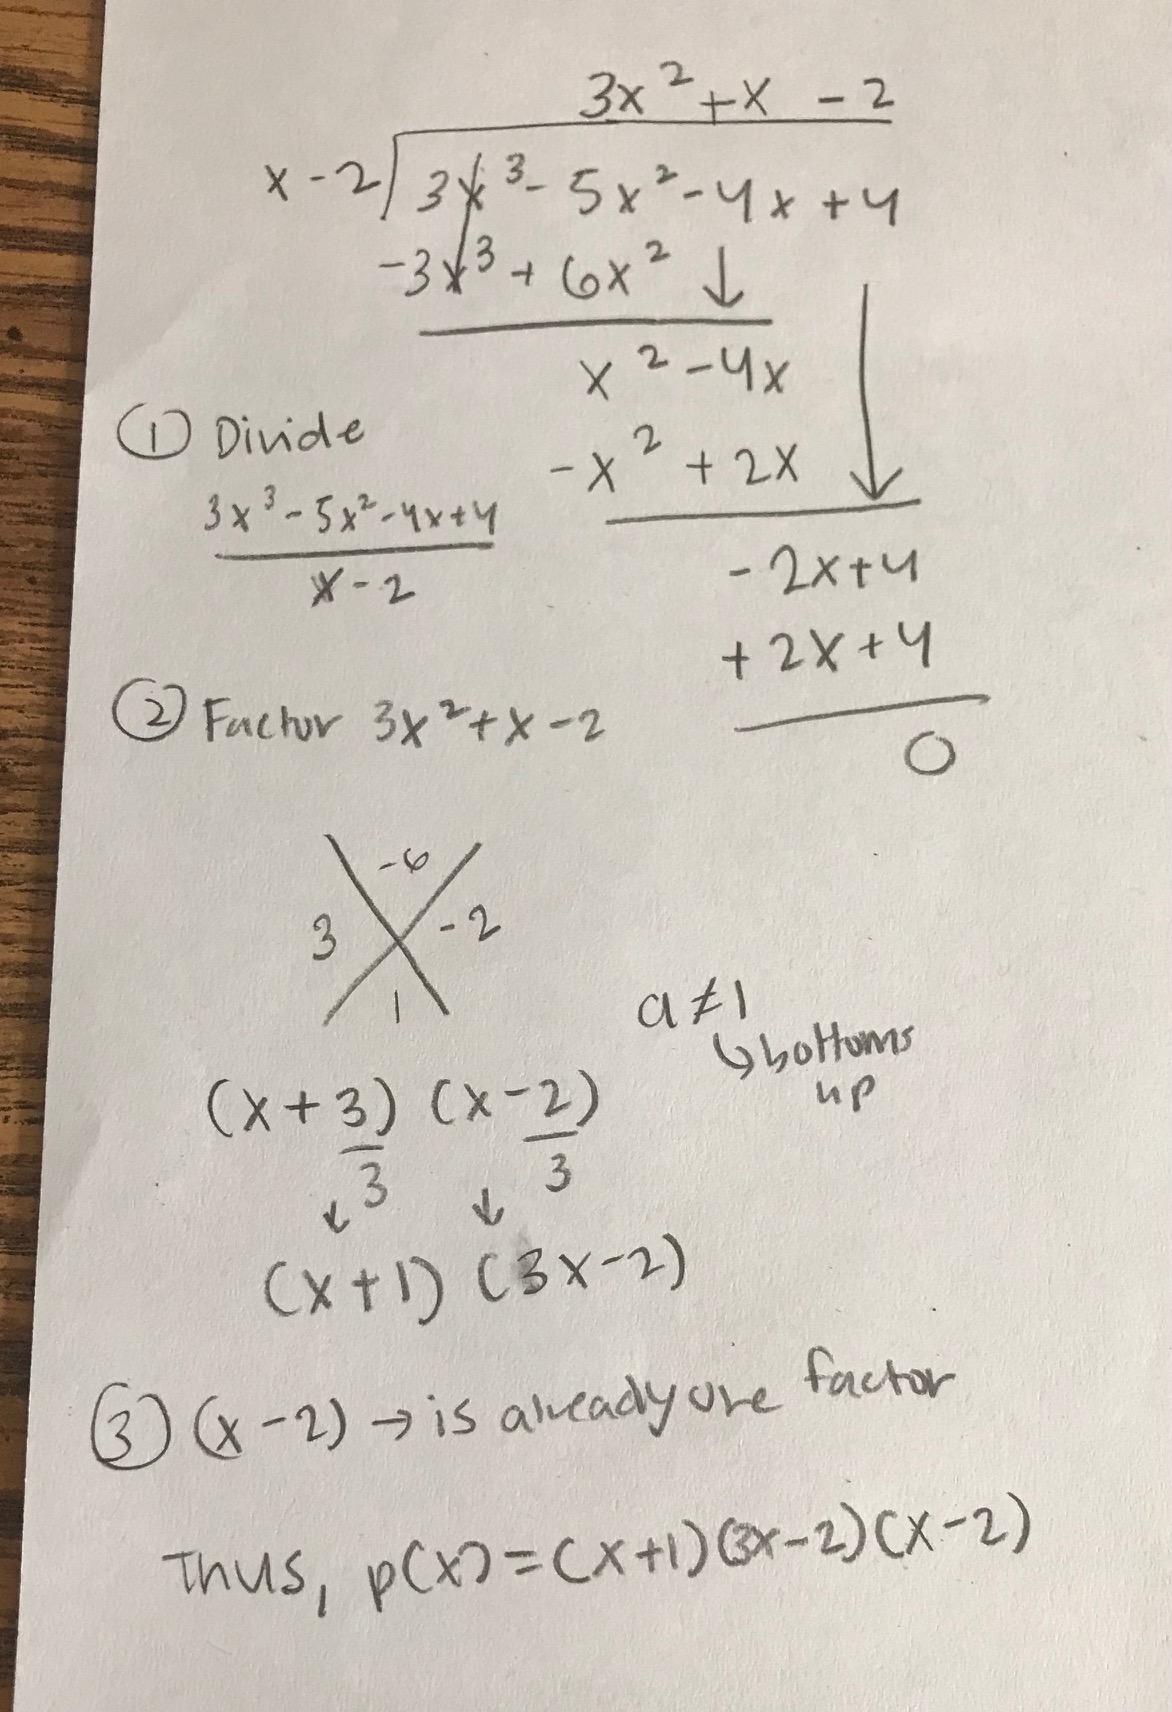 3x² + x - 2
x - 2 3x³ - 5x² - 4x + 4
-3x³ + 6x² ↓
x² - 4x
-x² + 2x
① Divide
3x³ - 5x² - 4x + 4
x - 2
-2x + 4
+ 2x + 4
0
② Factor 3x² + x - 2
-6
3 -2
1
a ≠ 1
↳ bottoms
up
(x + 3) (x - 2)
3 3
↓ ↓
(x + 1) (3x - 2)
③ (x - 2) → is already one factor
Thus, p(x) = (x + 1)(3x - 2)(x - 2)